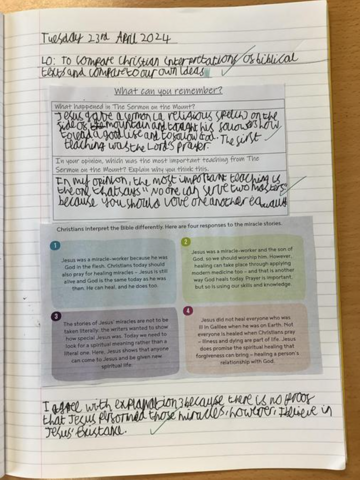 Tuesday 23rd April 2024
LO: To compare Christian interpretations of biblical
texts and compare to our own ideas
What can you remember?
What happened in The Sermon on the Mount?
Jesus gave a sermon (a religious speech) on the
side of the mountain and taught his followers how
to lead a good life and to follow God. The first
teaching was the Lord's prayer.
In your opinion, which was the most important teaching from The
Sermon on the Mount? Explain why you think this.
In my opinion, the most important teaching is
the one that says "no one can serve two masters"
because you should love one another equally
Christians interpret the Bible differently. Here are four responses to the miracle stories.
1
Jesus was a miracle-worker because he was
God in the flesh. Christians today should
also pray for healing miracles – Jesus is still
alive and God is the same today as he was
then. He can heal, and he does too.
2
Jesus was a miracle-worker and the son of
God, so we should worship him. However,
healing can take place through applying
modern medicine too – and that is another
way God heals today. Prayer is important,
but so is using our skills and knowledge.
3
The stories of Jesus' miracles are not to be
taken literally: the writers wanted to show
how special Jesus was. Today we need to
look for a spiritual meaning rather than a
literal one. Here, Jesus shows that anyone
can come to Jesus and be given new
spiritual life.
4
Jesus did not heal everyone who was
ill in Galilee when he was on Earth. Not
everyone is healed when Christians pray
– illness and dying are part of life. Jesus
does promise the spiritual healing that
forgiveness can bring – healing a person's
relationship with God.
I agree with explanation 3 because there is no proof
that Jesus performed those miracles, however, I believe in
Jesus' existance.